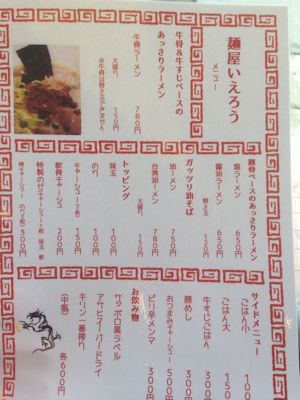 麺屋いえろう
メニュー
牛骨&牛すじベースの
あっさりラーメン
牛骨ラーメン 780円
大盛り 150円
※牛骨は替え玉できません
豚骨ベースのあっさりラーメン
塩ラーメン 650円
醤油ラーメン 650円
替え玉
ガッツリ油そば
油ーメン 750円
台湾油ーメン 780円
大盛り 150円
トッピング
味玉 100円
のり 100円
チャーシュー(2枚) 150円
軟骨チャーシュー 200円
300円
サイドメニュー
ごはん小 100
ごはん大 150
牛すじごはん 300
豚めし 300円
おつまみチャーシュー 500円
ピリ辛メンマ 300円
お飲み物
サッポロ黒ラベル
アサヒスーパードライ
キリン一番搾り
(中瓶) 各600円